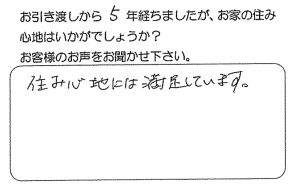 お引き渡しから 5 年経ちましたが、お家の住み
心地はいかがでしょうか？
お客様のお声をお聞かせ下さい。
住み心地には満足しています。